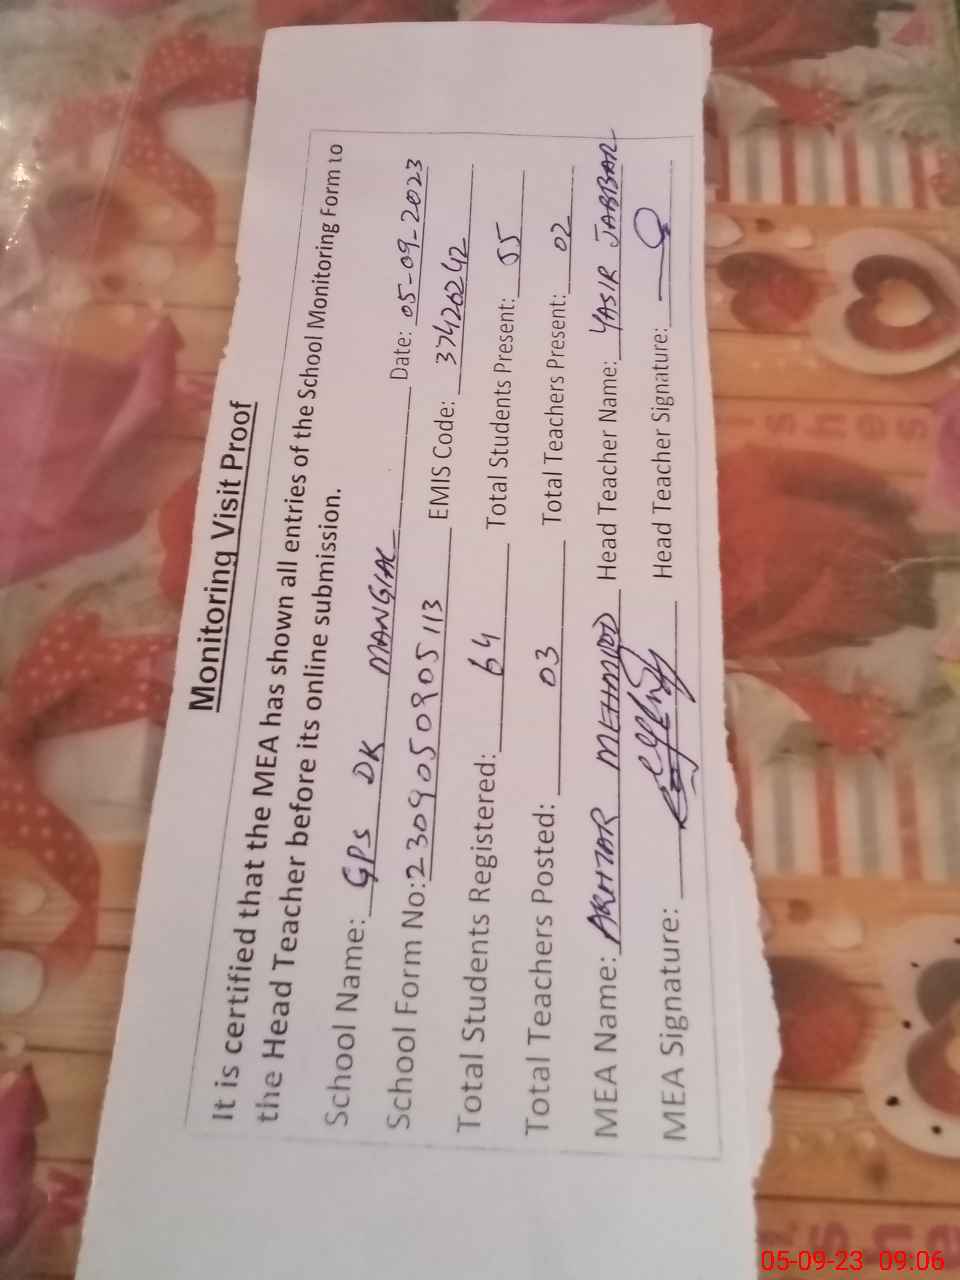 Monitoring Visit Proof
It is certified that the MEA has shown all entries of the School Monitoring Form to
the Head Teacher before its online submission.
School Name: GPS DK MANGIAL Date: 05-09-2023
School Form No: 2309050905113 EMIS Code: 37426242
Total Students Registered: 64 Total Students Present: 55
Total Teachers Posted: 03 Total Teachers Present: 02
MEA Name: AKHTAR MEHMOOD Head Teacher Name: YASIR JABBAR
MEA Signature: Head Teacher Signature:
05-09-23 09:06